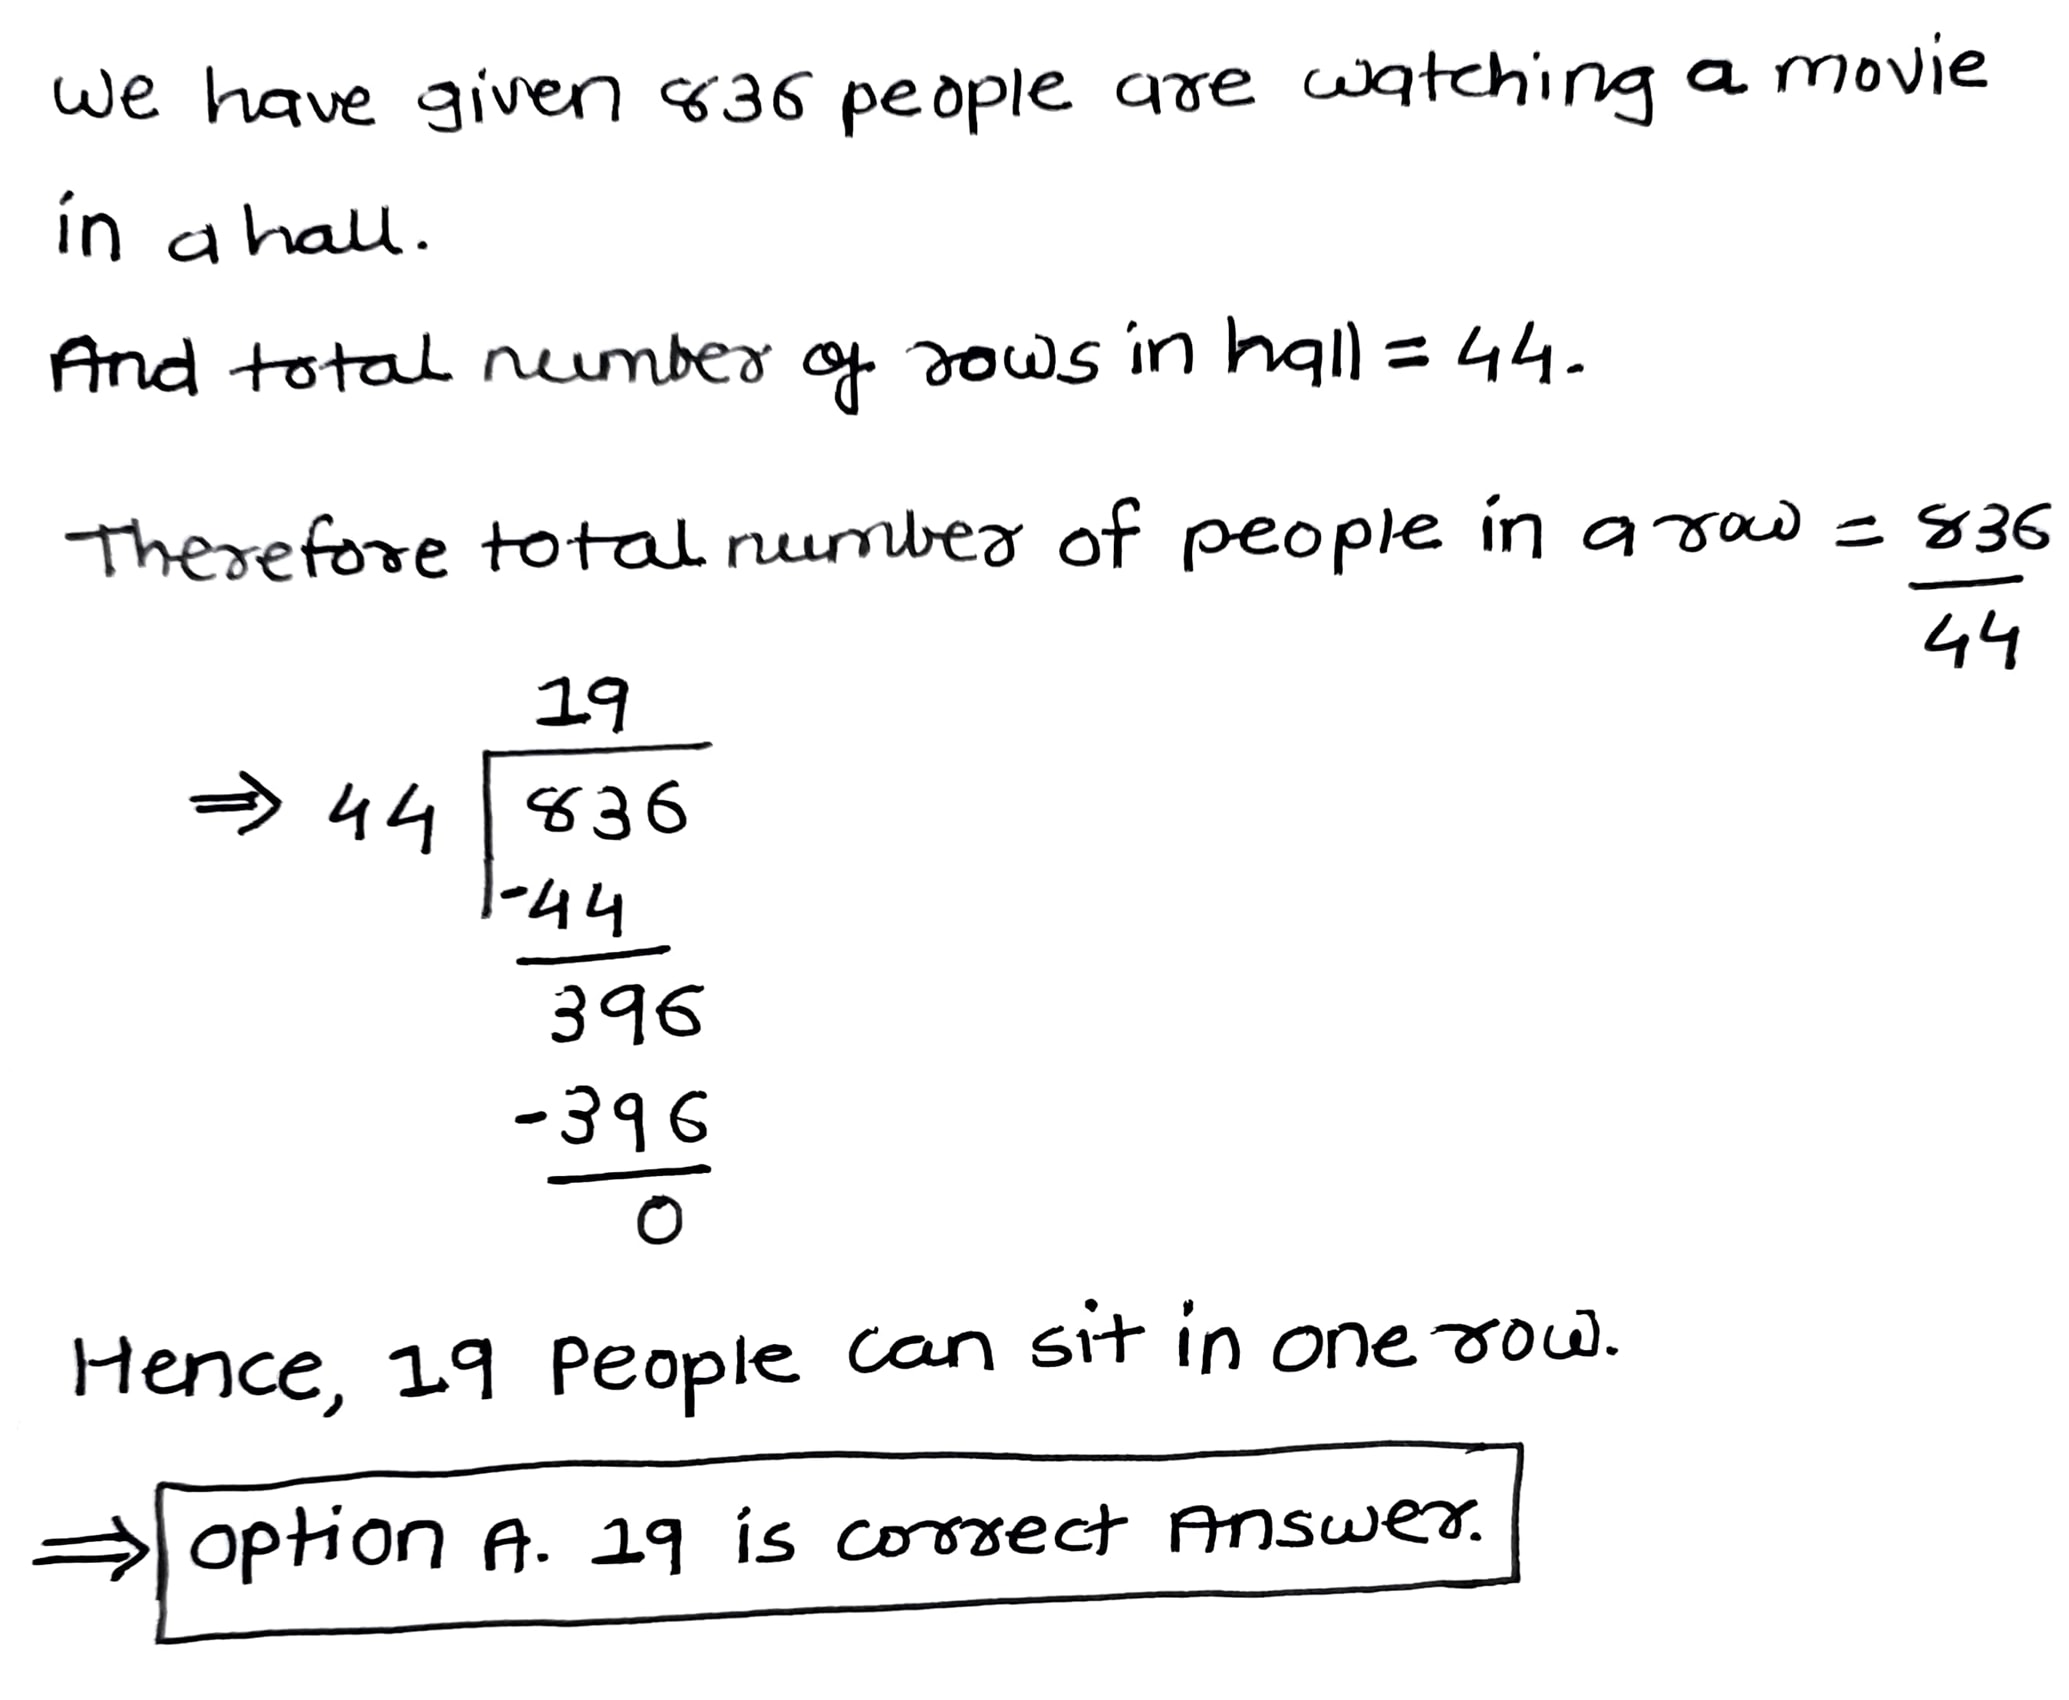 We have given 836 people are watching a movie
in a hall.
And total number of rows in hall = 44.
Therefore total number of people in a row = 836
44
19
⇒ 44 836
-44
396
-396
0
Hence, 19 people can sit in one row.
⇒ option A. 19 is correct Answer.